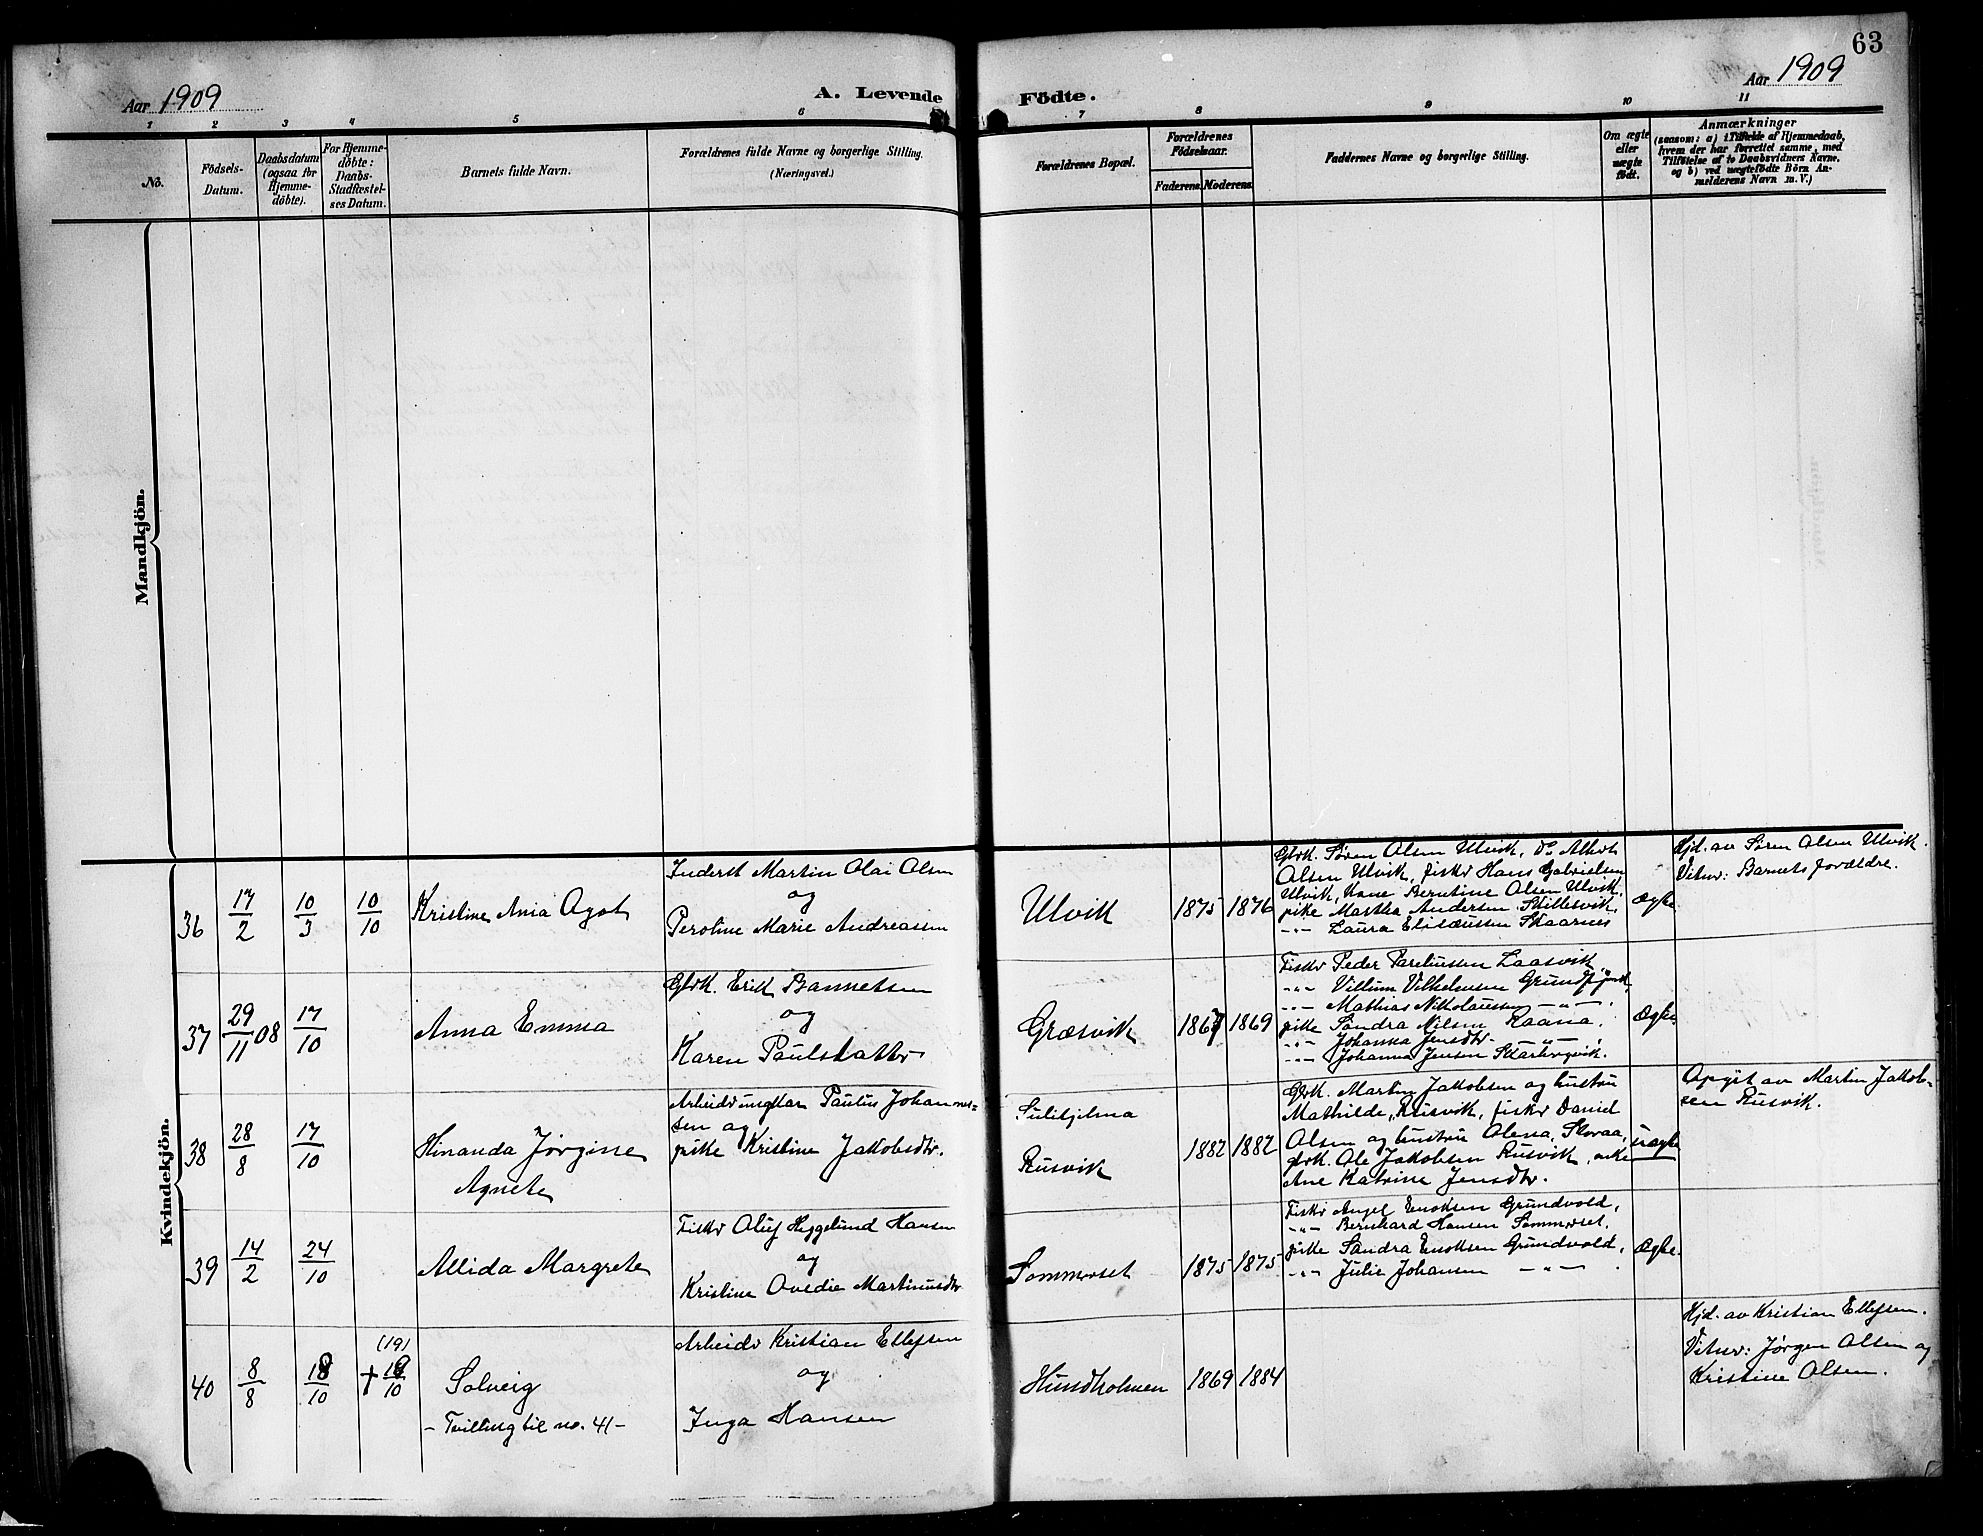 63
Aar 1909
A. Levende Födte.
Aar 1909
1 2 3 4 5 6 7 8 9 10 11
No.
Födsels-
Datum.
Daabsdatum
(ogsaa for
Hjemme-
döbte).
For Hjemme-
döbte:
Daabs-
Stadfæstel-
ses Datum.
Barnets fulde Navn.
Forældrenes fulde Navne og borgerlige Stilling.
(Næringsvei.)
Forældrenes Bopæl.
Forældrenes
Födselsaar.
Faderens. Moderens.
Faddernes Navne og borgerlige Stilling.
Om ægte
eller
uægte
födt.
Anmærkninger
(saasom: a) i Tilfælde af Hjemmedaab,
hvem der har forrettet samme, med
Tilföielse af to Daabsvidners Navne,
og b) ved uægtefödte Börn An-
melderens Navn m. V.)
Mandkjön.
Kvindekjön.
36
17/2
10/3
10/10
Kristine Ania Agot
Inderst Martin Olai Olsen
og
Peroline Marie Andreassen
Ulvik
1875 1876
Gbrk. Søren Olsen Ulvik, Do Albert
Olsen Ulvik, fisker Hans Gabrielsen
Ulvik, Kone Berntine Olsen Ulvik,
pike Martha Andersen Skillesvik,
-"- Laura Elisæussen Skaarnes
Ægte
Hjd. av Søren Olsen Ulvik.
Vitner: Barnets forældre.
37
29/11 08
17/10
Anna Emma
Gbrk. Erik Bannetsen
og
Karen Paulsdatter
Græsvik
1867 1869
Fisker Peder Pareliussen Laasvik
-"- Villum Vilhelmsen
-"- Mathias Nikolaussen -"-.
pike Sandra Nilsen Raana,
-"- Johanna Jensdtr. -"-,
-"- Johanna Jensen Skarbergvik.
Ægte.
38
28/8
17/10
Hinanda Jørgine
Agnete
Arbeidsungkar Paulus Johannes-
sen og
pike Kristine Jakobsdtr.
Sulitjelma
Rusvik
1882 1882
Gbrk. Martin Jakobsen og hustru
Mathilde, Rusvik, fisker Daniel
Olsen og hustru Olena, Storaa,
gbrk. Ole Jakobsen Rusvik, enke
Ane Katrine Jensdtr.
uægte
Opgit av Martin Jakob-
sen Rusvik.
39
14/2
24/10
Allida Margrete
Fisker Oluf Heggelund Hansen
og
Kristine Ovedie Martinusdtr
Sommerset
1875 1875
Fisker Angel Enoksen Grundvold,
-"- Bernhard Hansen Sommerset,
pike Sandra Enoksen Grundvold,
-"- Julie Johansen -"-.
Ægte.
40
8/8
18/10
(19)
† 18/10
Solveig
- Tvilling til no. 41 -
Arbeider Kristian Ellefsen
og
Inga Hansen
Hundholmen
1869 1884
Hjd. av Kristian Ellefsen.
Vitner: Jørgen Olsen og
Kristine Olsen.